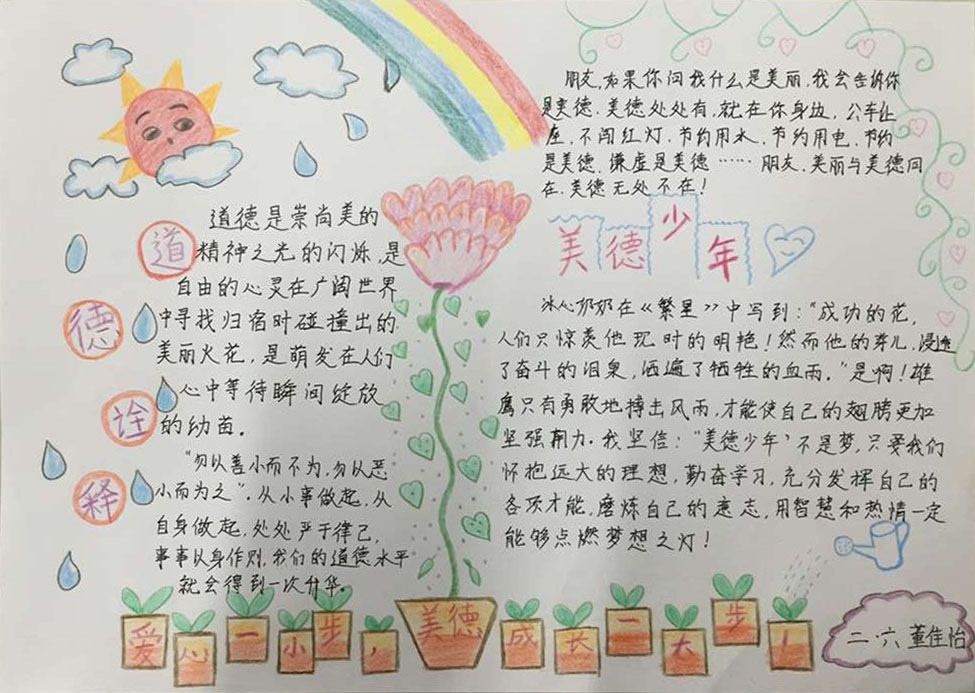 道德诠释
道德是崇尚美的
精神之光的闪烁,是
自由的心灵在广阔世界
中寻找归宿时碰撞出的
美丽火花,是萌发在人们
心中等待瞬间绽放
的幼苗。
“勿以善小而不为,勿以恶
小而为之”.从小事做起,从
自身做起,处处严于律己,
事事以身作则,我们的道德水平
就会得到一次升华.
朋友,如果你问我什么是美丽,我会告诉你
是美德.美德处处有,就在你身边,公车让
座,不闯红灯.节约用水、节约用电、节约
是美德.谦虚是美德……朋友、美丽与美德同
在.美德无处不在!
美德少年
冰心奶奶在《繁星》中写到:“成功的花,
人们只惊羡他现时的明艳!然而他的芽儿,浸透
了奋斗的泪泉,洒遍了牺牲的血雨。”是啊!雄
鹰只有勇敢地搏击风雨,才能使自己的翅膀更加
坚强有力.我坚信:“美德少年”不是梦,只要我们
怀抱远大的理想,勤奋学习,充分发挥自己的
各项才能,磨炼自己的意志,用智慧和热情一定
能够点燃梦想之灯!
爱心一小步,美德成长一大步!
二.六 董佳怡